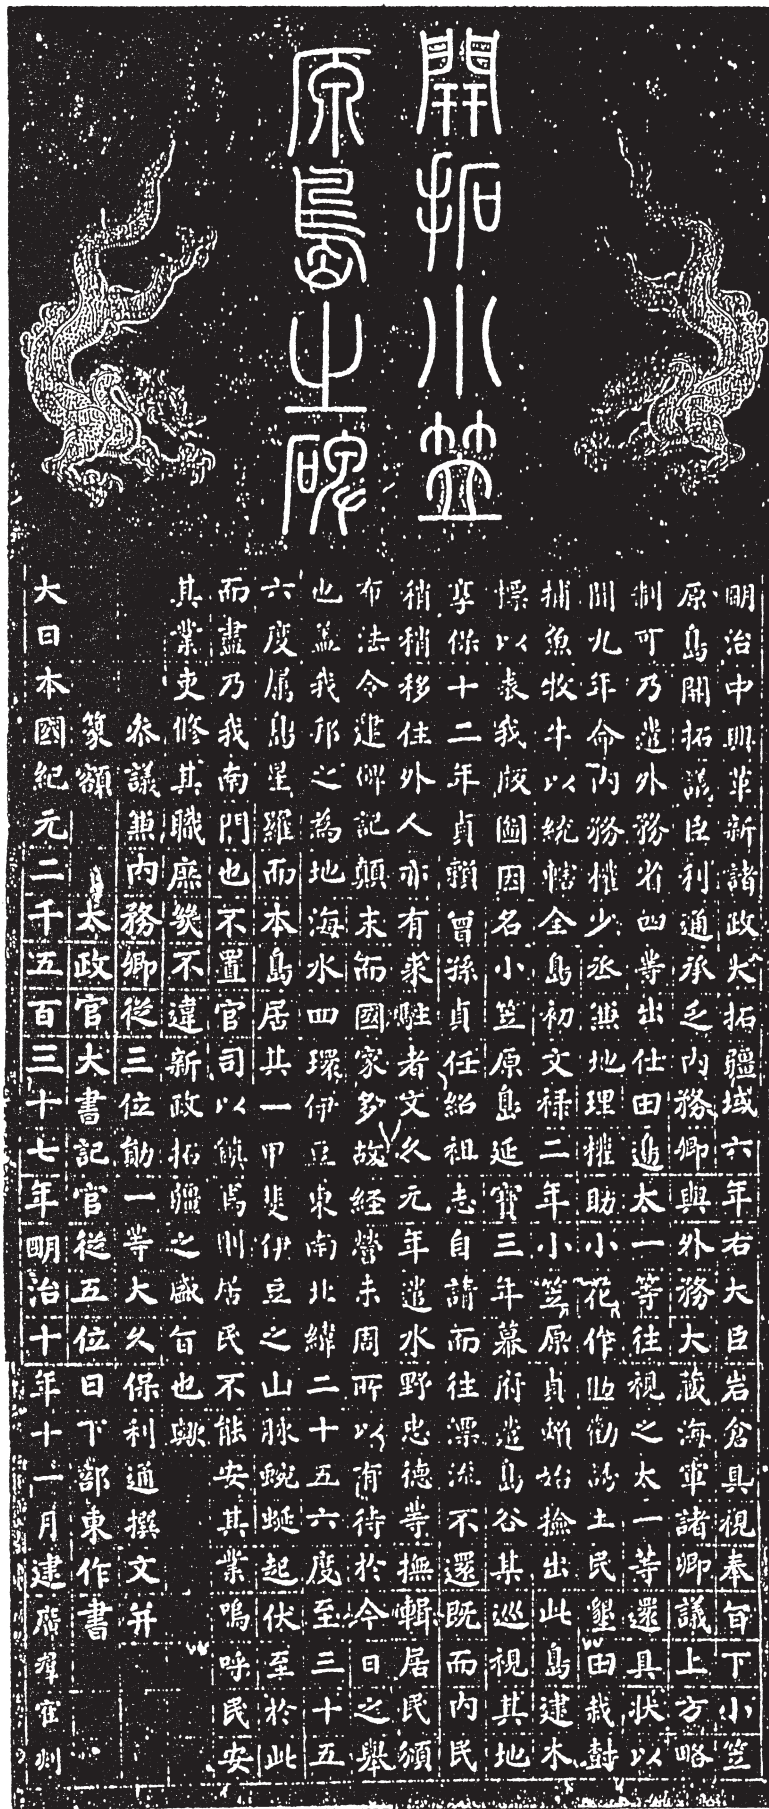 開拓小笠
原島之碑
明治中興革新諸政大拓疆域六年右大臣岩倉具視奉旨下小笠
原島開拓議臣利通承乏内務卿與外務大蔵海軍諸卿議上方略
制可乃遣外務省四等出仕田邉太一等往視之太一等還具狀以
聞九年命内務權少丞兼地理權助小花作助勸誘土民墾田栽樹
捕魚牧牛以統轄全島初文祿二年小笠原貞頼始撿出此島建木
標以表我版圖因名小笠原島延寶三年幕府遣島谷某巡視其地
享保十二年貞頼曾孫貞任紹祖志自請而往漂流不還既而内民
稍稍移住外人亦有來駐者文久元年遣水野忠德等撫輯居民頒
布法令建碑記顛末而國家多故経營未周所以有待於今日之舉
也葢我邦之為地海水四環伊豆東南北緯二十五六度至三十五
六度属島星羅而本島居其一甲斐伊豆之山脉蜿蜒起伏至於此
而盡乃我南門也不置官司以鎮焉則居民不能安其業嗚呼民安
其業吏修其職庶幾不違新政拓疆之盛旨也歟
參議兼内務卿從三位勛一等大久保利通撰文并
篆額 太政官大書記官從五位日下部東作書
大日本國紀元二千五百三十七年明治十年十一月建 廣羣寉刻